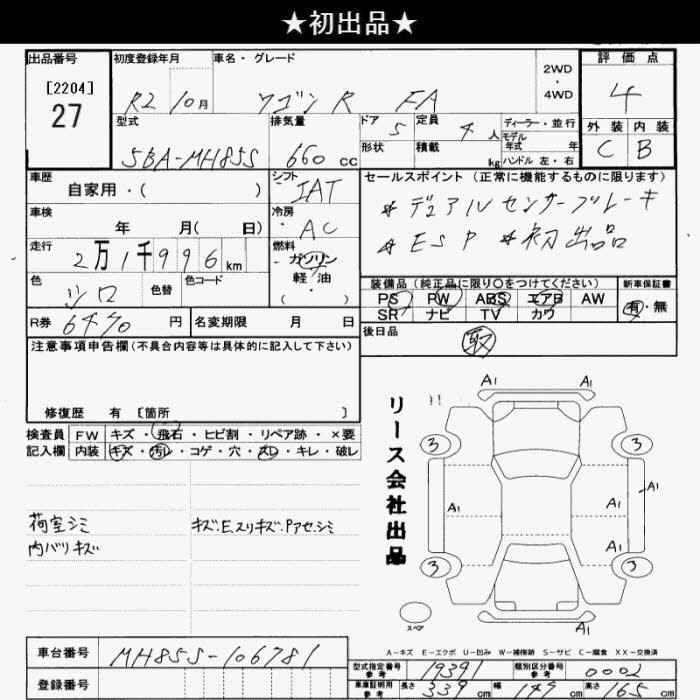 ★初出品★
出品番号
[2204]
27
初度登録年月
R2 10月
車名・グレード
ワゴン R FA
2WD
・
4WD
評価点
4
外装 内装
C B
型式
5BA-MH85S
排気量
660 cc
ドア 5
形状
定員 4 人
積載 kg
ディーラー・並行
モデル
年式 年
ハンドル 左・右
車歴
自家用・( )
シフト
IAT
セールスポイント (正常に機能するものに限ります)
* デュアルセンサーブレーキ
* ESP * 初出品
車検
年 月( 日)
冷房
AC
走行
2万1千996km
燃料
ガソリン
軽・油
・( )
色
シロ
色替
色コード
装備品(純正品に限り○をつけてください)
PS PW ABS エアB AW
SR ナビ TV カワ
新車保証書
有・無
R券 6470 円
名変期限 月 日
後日品
取
注意事項申告欄(不具合内容等は具体的に記入して下さい)
修復歴 有 [箇所 ]
検査員
記入欄
FW キズ・飛石・ヒビ割・リペア跡・×要
内装 キズ・汚レ・コゲ・穴・スレ・キレ・破レ
荷室シミ
内バリキズ
キズ.E.スリキズ.Pアセ.シミ
リース会社出品
A1 A1
3 3
A1 A1 A1
A1
3 3
A1
スペア
A-キズ E-エクボ U-凹み W-補修跡 S-サビ C-腐食 XX-交換済
車台番号
MH85S-106781
登録番号
型式指定番号
参考
19391
類別区分番号
参考
0002
車庫証明用
参考
長さ 339 cm
幅 149 cm
高さ 165 cm